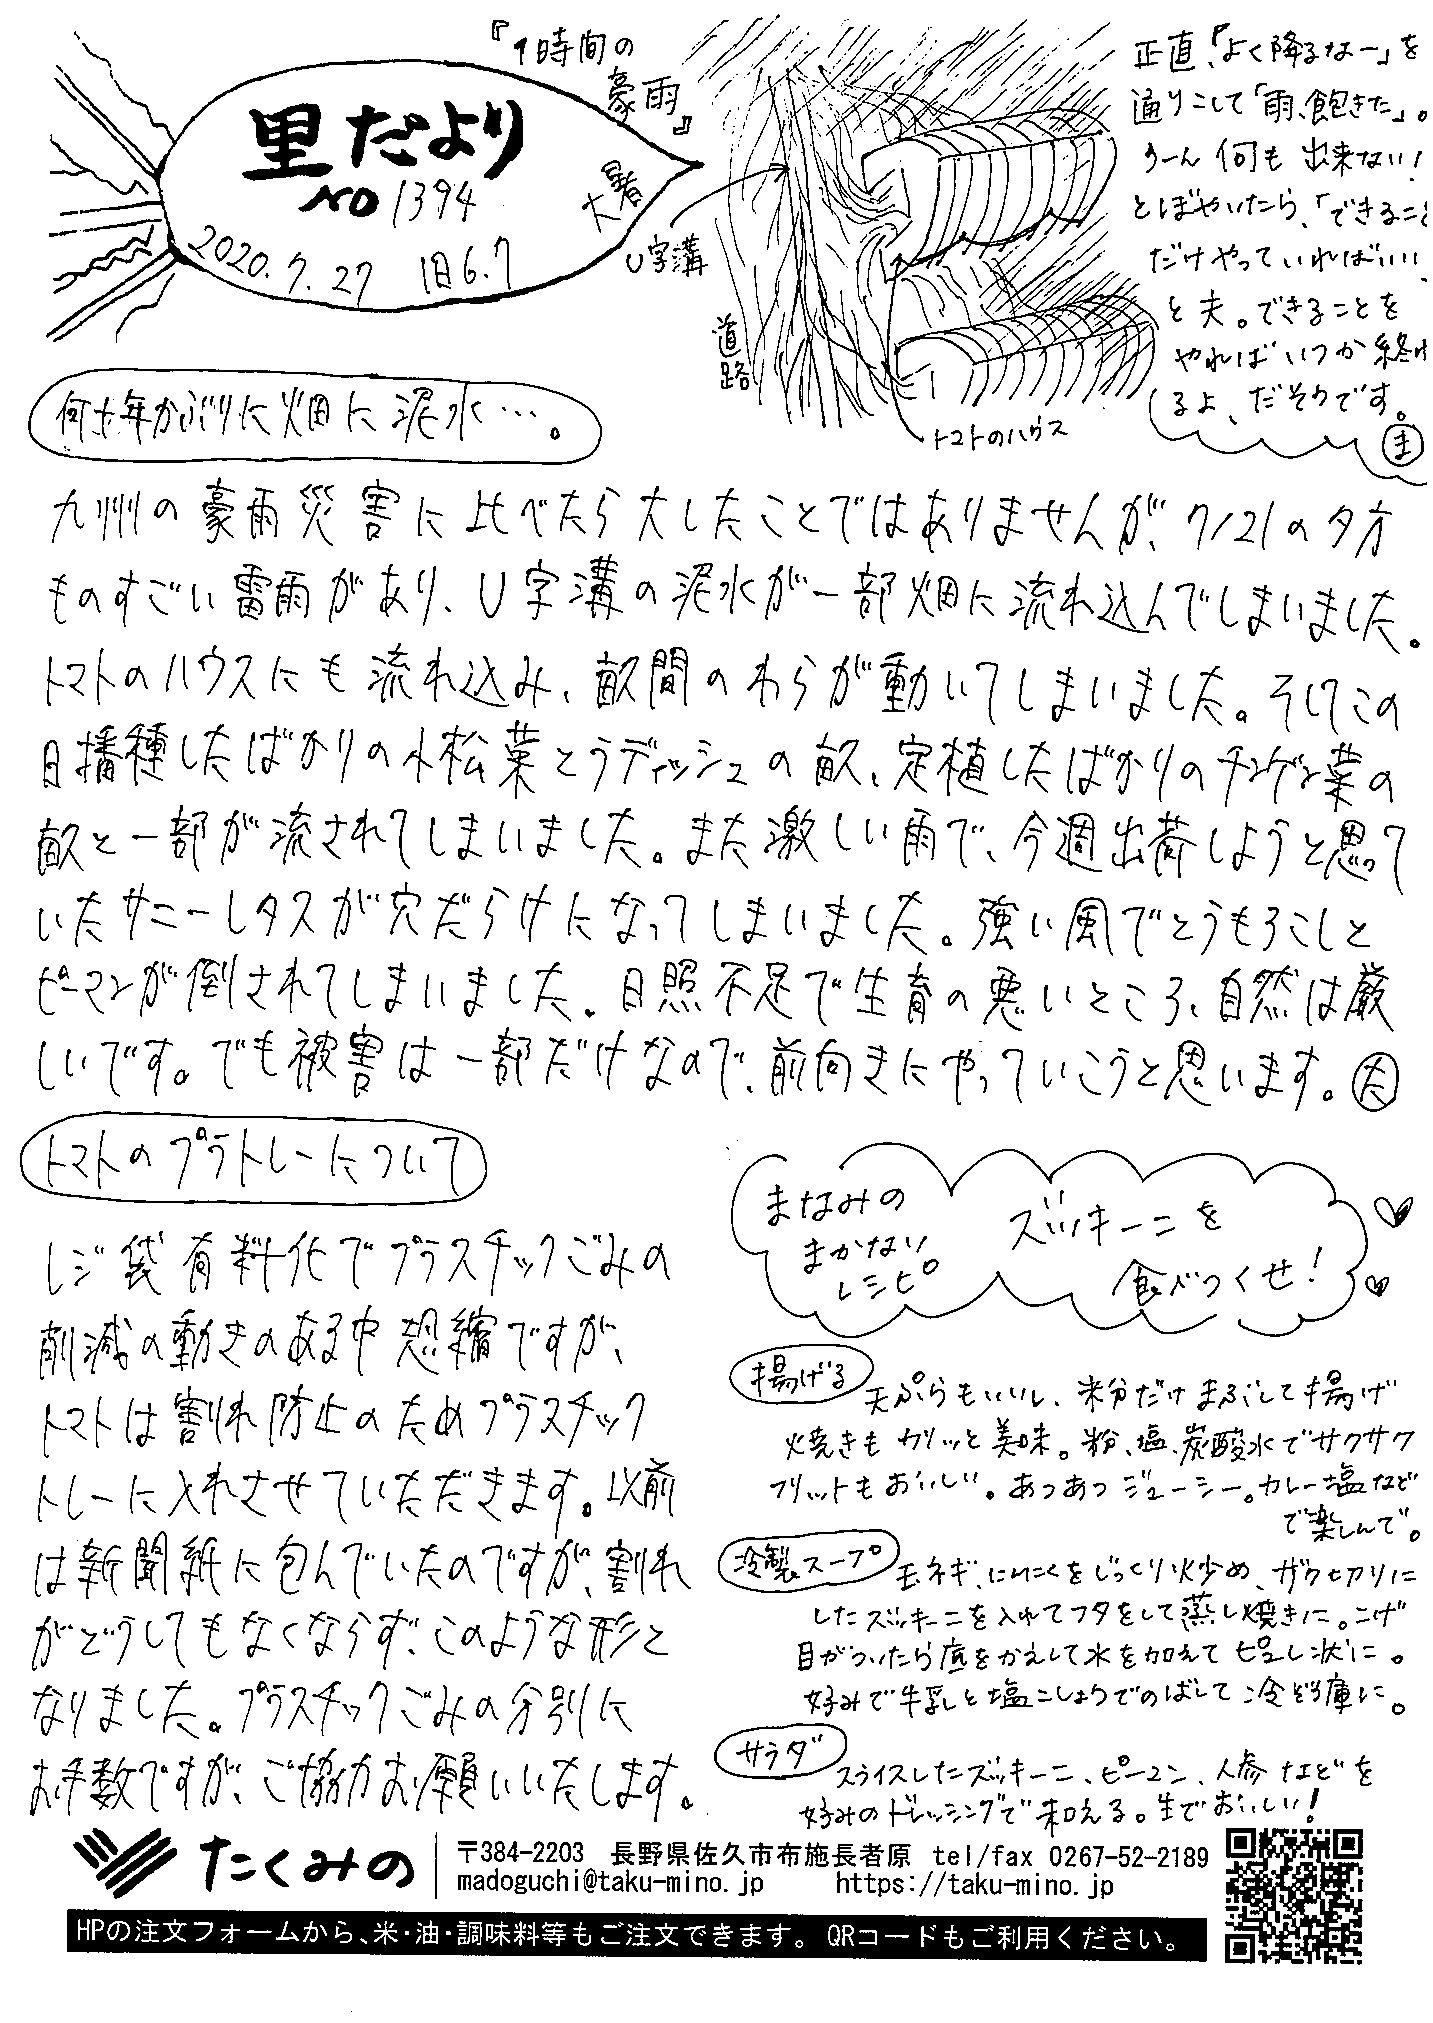 里だより
NO 1394
2020.7.27 旧6.7
大暑
『1時間の
豪雨』
U字溝
道路
トマトのハウス
正直、「よく降るなー」を
通りこして「雨、飽きた」。
うーん 何も 出来ない!
とぼやいたら、「できること
だけやっていればいい」
と夫。できることを
やれば いつか 終わ
るよ、だそうです。
ま
何十年かぶりに畑に泥水…。
九州の豪雨災害に比べたら大したことではありませんが、7/21の夕方
ものすごい雷雨があり、U字溝の泥水が一部畑に流れ込んでしまいました。
トマトのハウスにも流れ込み、畝間のわらが動いてしまいました。そしてこの
日播種したばかりの小松菜とラディッシュの畝、定植したばかりのチンゲン菜の
畝と一部が流されてしまいました。また激しい雨で、今週出荷しようと思って
いたサニーレタスが穴だらけになってしまいました。強い風でとうもろこしと
ピーマンが倒されてしまいました。日照不足で生育の悪いところ、自然は厳
しいです。でも被害は一部だけなので、前向きにやっていこうと思います。
トマトのプラトレーについて
レジ袋有料化でプラスチックごみの
削減の動きのある中 恐縮ですが、
トマトは割れ防止のためプラスチック
トレーに入れさせていただきます。以前
は新聞紙に包んでいたのですが、割れ
がどうしてもなくならず、このような形と
なりました。プラスチックごみの分別に
お手数ですが、ご協力お願いいたします。
まなみの
まかない
レシピ
ズッキーニを
食べつくせ!
揚げる 天ぷらもいいし、米粉だけまぶして揚げ
焼きもカリッと美味。粉、塩、炭酸水でサクサク
フリットもおいしい。あつあつジューシー。カレー塩など
で楽しんで。
冷製スープ 玉ネギ、にんにくをじっくり炒め、ザク切りに
したズッキーニを入れてフタをして蒸し焼きに。こげ
目がついたら底をかえして水を加えてピューレ状に。
好みで牛乳と塩こしょうでのばして冷蔵庫に。
サラダ スライスしたズッキーニ、ピーマン、人参などを
好みのドレッシングで和える。生でおいしい!
たくみの
〒384-2203 長野県佐久市布施長者原 tel/fax 0267-52-2189
madoguchi@taku-mino.jp https://taku-mino.jp
HPの注文フォームから、米・油・調味料等もご注文できます。 QRコードもご利用ください。